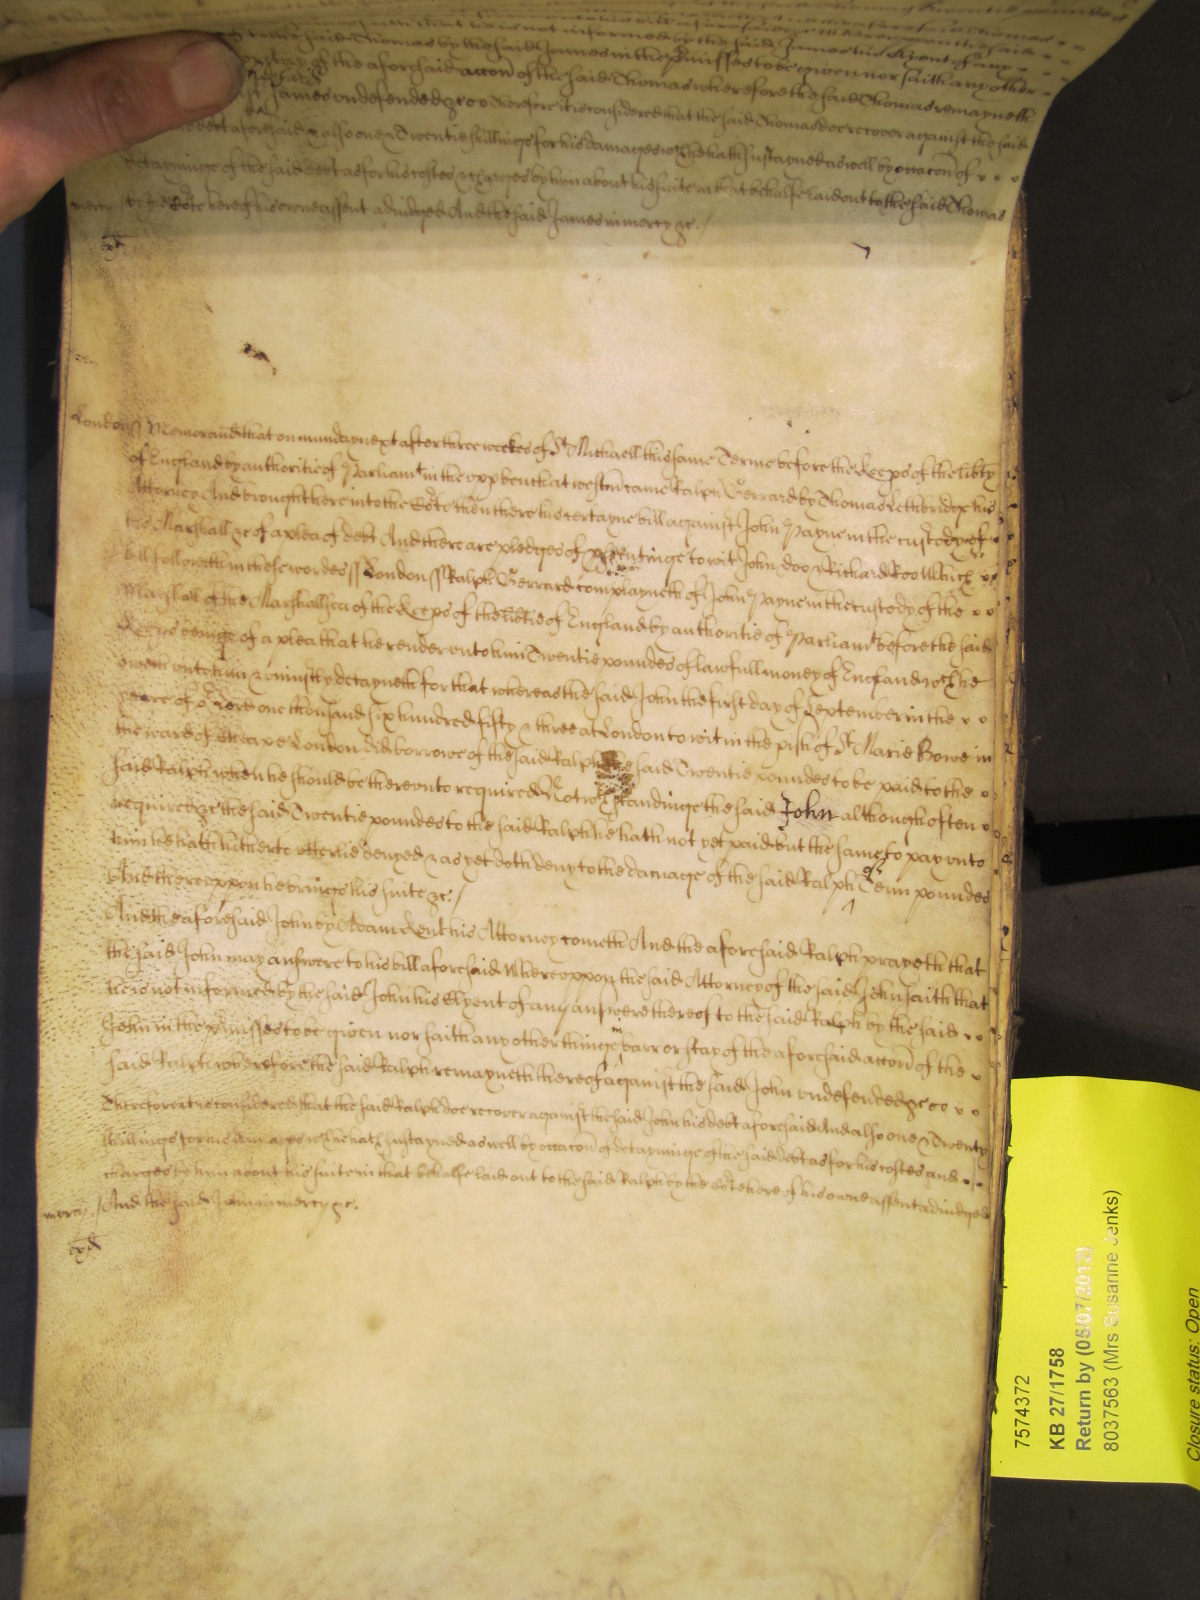 said Thomas by the said James in the p'misses to be given nor saith any other
stay of the aforesaid accon of the said Thomas wherefore the said Thomas remayneth
aforesaid
James undefended &c Therefore it is considered that the said Thomas doe recover against the said
debt aforesaid & also one & Twentie shillings for his damages wch he hath sustayned aswell by occacon of
detayninge of the said debt as for his costes & charges by him about his suite in that behalfe laid out to the said Thomas
mercy / by the Co'te here of his owne assent adiudged And the said James in mercy &c. /
exd
London ss Memorand that on munday next after three weekes of St Michaell this same Terme before the Keeps of the lib'ty
of England by authoritie of Parliamt in the upp bench at Westm came Ralph Gerrard by Thomas Letheridge his
Attorney And brought here into the Co'te then there his certayne bill against John Payne in the custody of
the Marshall &c of a plea of debt And there are pledges of p'secutinge to wit John Doo & Richard Roo Which
bill followeth in these wordes ss London ss Ralph Gerrard complayneth of John Payne in the custody of the
Marshall of the Marshallsea of the Keeps of the lib'tie of England by authoritie of Parliamt before the said
Keeps beinge of a plea that he render unto him Twentie poundes of lawfull money of England wch he
oweth unto him & uniustly detayneth for that whereas the said John the first day of September in the
yeare of or Lord one thousand six hundred fifty & three at London to wit in the p'ish of St Marie Bowe in
the ward of Cheape London did borrowe of the said Ralph the said Twentie poundes to be paid to the
said Ralph when he should be thereunto required Notwthstandinge the said John although often
required &c the said Twentie poundes to the said Ralph he hath not yet paid but the same to pay unto
him he hath hitherto utterlie denyed & as yet doth deny to the damage of the said Ralph of Tenn poundes
And thereuppon he bringes his suite &c. /
And the aforesaid John by Adam Kent his Attorney cometh And the aforesaid Ralph prayeth that
the said John may answere to his bill aforesaid Whereuppon the said Attorney of the said John saith that
he is not informed by the said John his Clyent of any answere thereof to the said Ralph by the said
John in the p'misses to be given nor saith any other thinge in barr or stay of the aforesaid accon of the
said Ralph wherefore the said Ralph remayneth thereof against the said John undefended &c
Therefore it is considered that the said Ralph doe recover against the said John his debt aforesaid And also one & Twenty
shillings for his damages wch he hath sustayned aswell by occacon of detayninge of the said debt as for his costes and
charges by him about his suite in that behalfe laid out to the said Ralph by the Co'te here of his owne assent adiudged
mercy / And the said John in mercy &c.
exd
7574372
KB 27/1758
Return by (05/07/2012)
8037563 (Mrs Susanne Jenks)
Closure status: Open